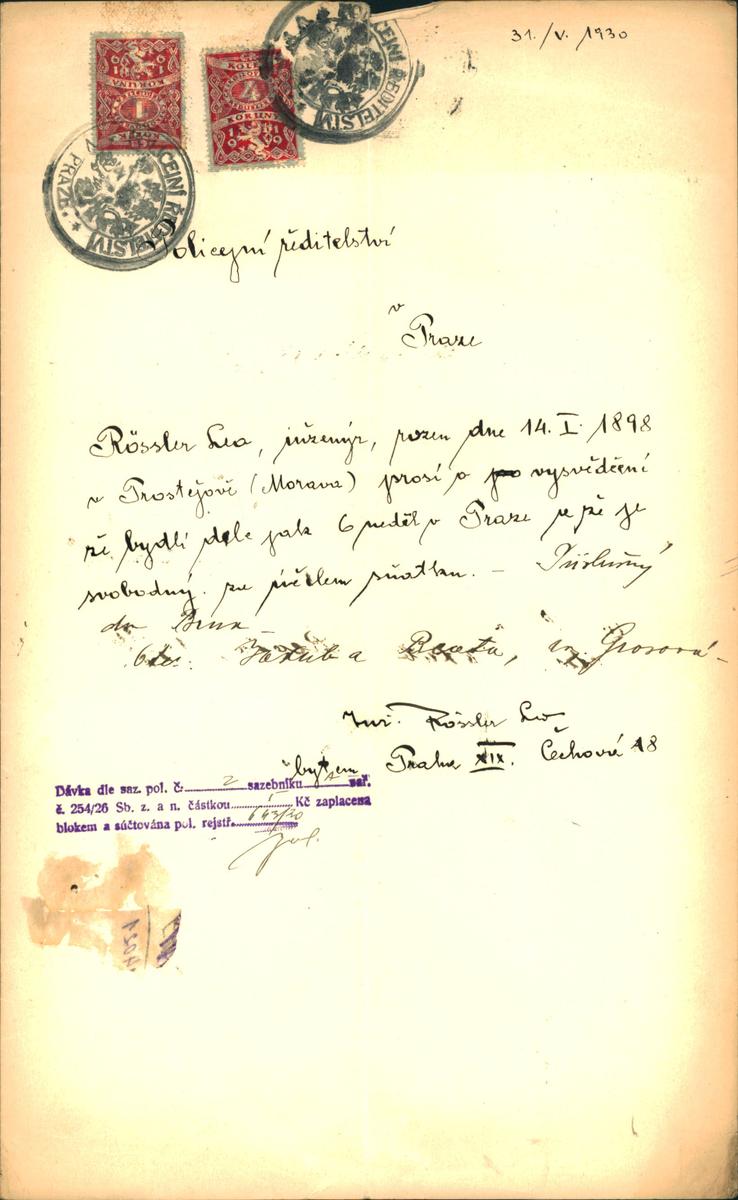 31./V. 1930
1919
KORUNA
1
KOLEK
4
KORUNY
1919
POLICEJNÍ ŘEDITELSTVÍ
V PRAZE
Policejní ředitelství
v
Praze
Rössler Leo, inženýr, rozen dne 14. I. 1898
v Prostějově (Morava) prosí o vysvědčení
že bydlí déle jak 6 neděl v Praze a že je
svobodný. za účelem sňatku. – Příslušný
do Brna
Otec: Jakub a Beata, roz. Grosová –
Inž. Rössler Leo
bytem Praha XIX. Čechova 18
Dávka dle saz. pol. č. 2 sazebníku nař.
č. 254/26 Sb. z. a n. částkou 1 Kč zaplacena
blokem a súčtována pol. rejstř. 643/30